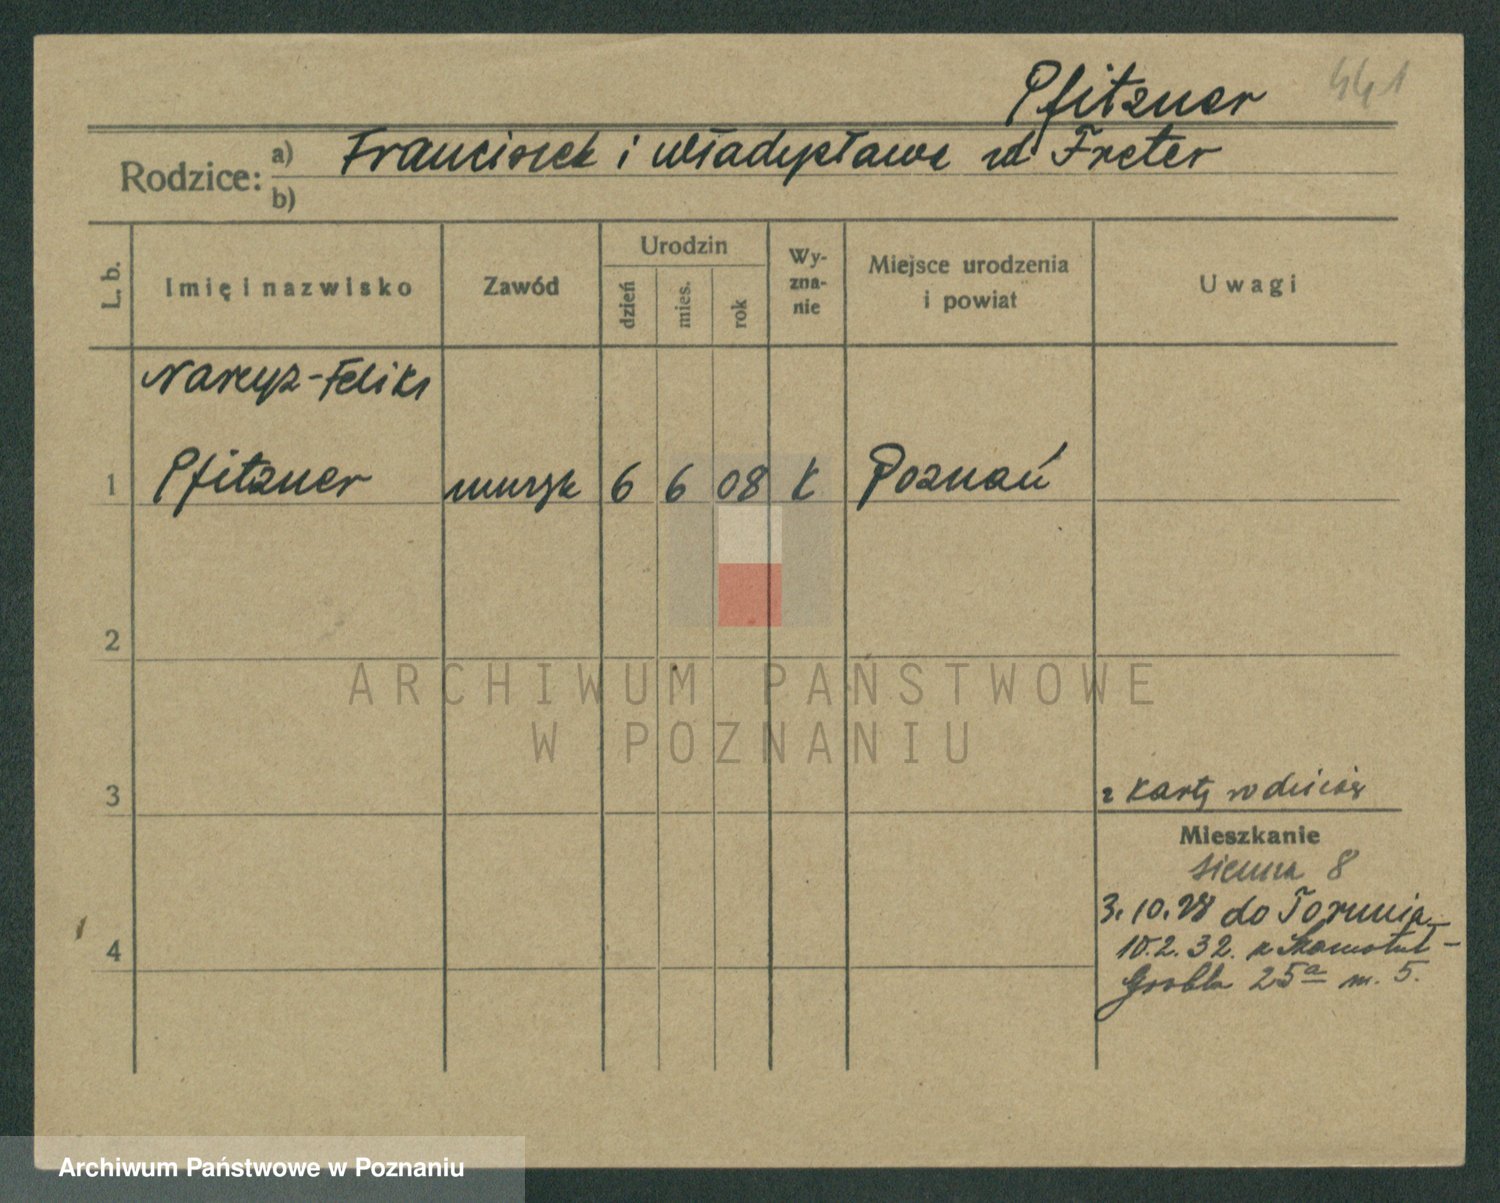 Pfitzner 441
Rodzice: a) Franciszek i Władysława zd. Freter
b)
L. b. Imię i nazwisko Zawód Urodzin dzień mies. rok Wyznanie Miejsce urodzenia i powiat Uwagi
Narcyz-Feliks
1 Pfitzner muzyk 6 6 08 k Poznań
2
ARCHIWUM PAŃSTWOWE
W POZNANIU
3 z karty rodziców
Mieszkanie
Sienna 8
3.10.28 do Torunia
4 10.2.32. z
Grobla 25a m. 5.
Archiwum Państwowe w Poznaniu